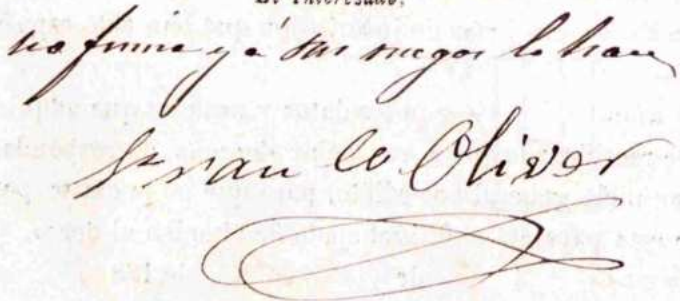 El Interesado,
no firma y á sus ruegos lo hace
Fran co Oliver